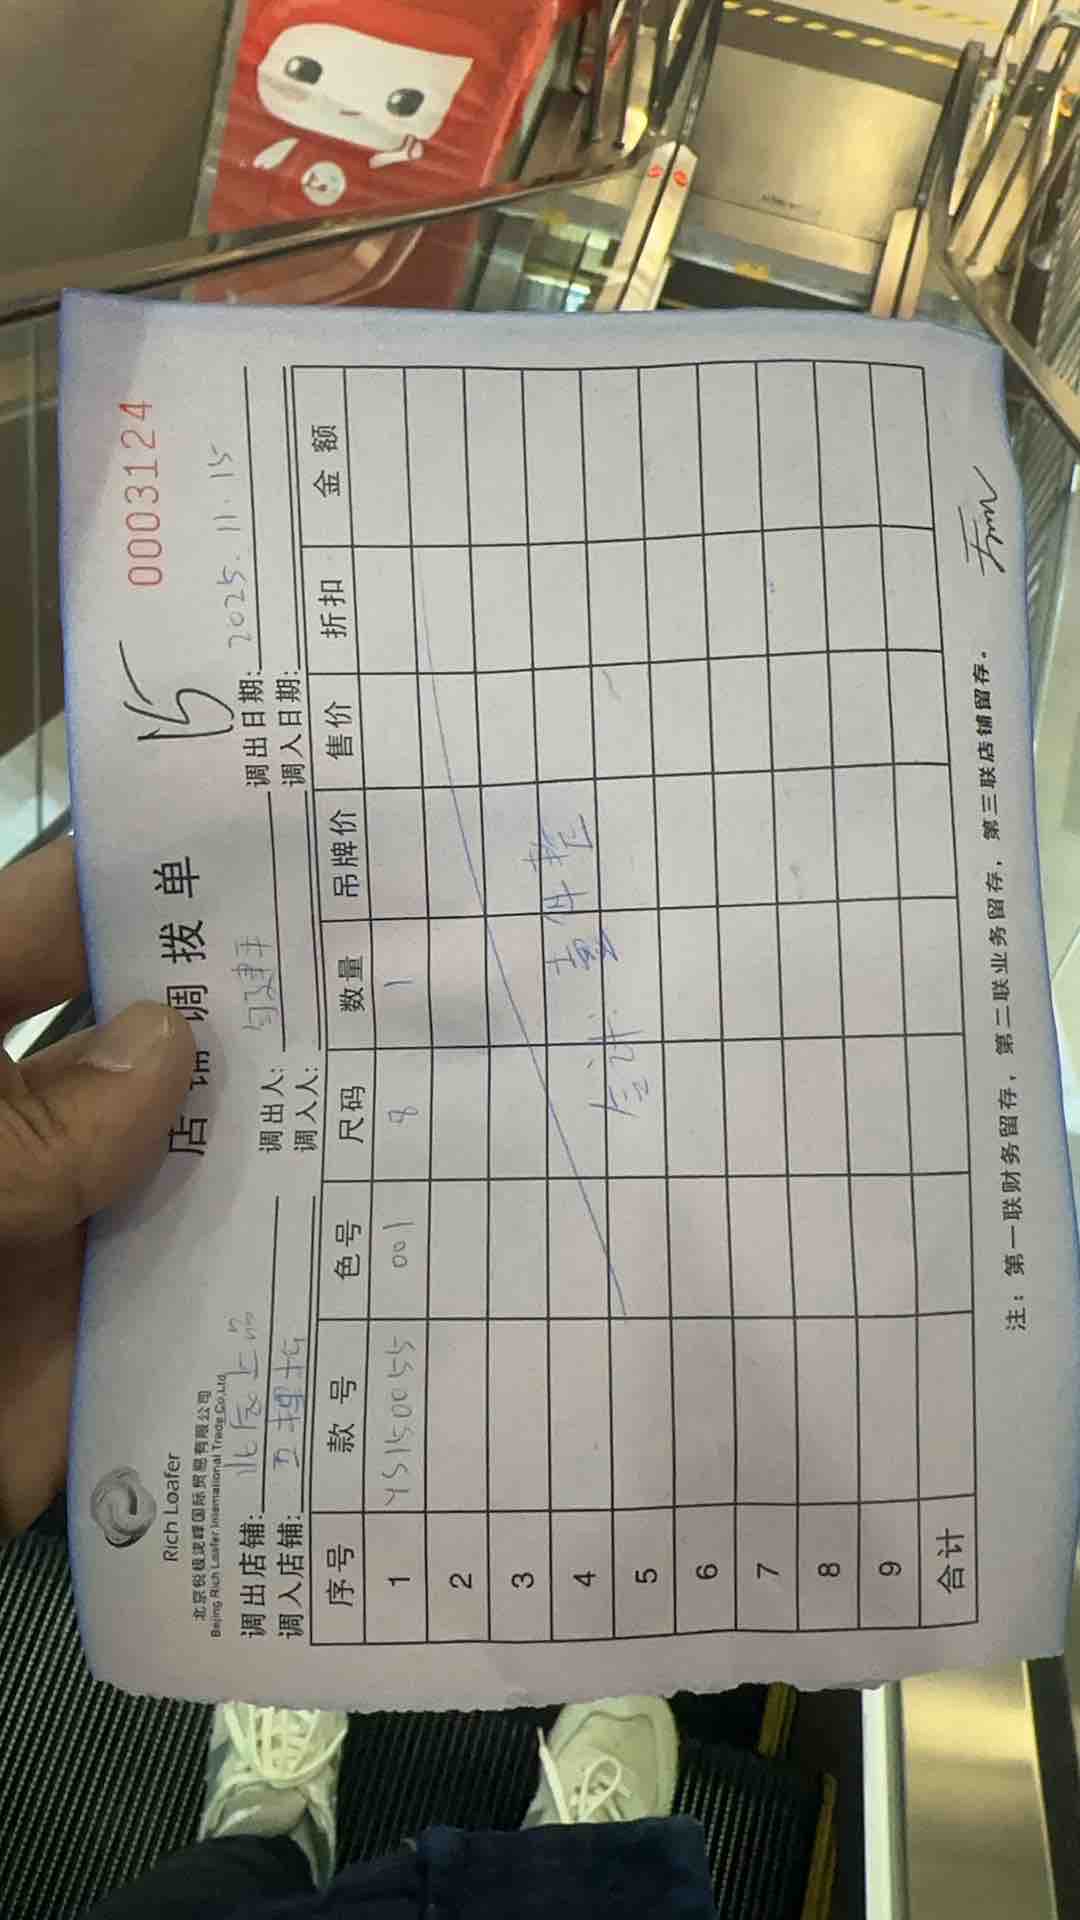 Rich Loafer
北京锐极泷峰国际贸易有限公司
Beijing Rich Loafer International Trade Co.,Ltd.
店铺调拨单 15 0003124
调出店铺: 北辰 调出人: 句建平 调出日期: 2025.11.15
调入店铺: 王 调入人: 调入日期:
序号 款号 色号 尺码 数量 吊牌价 售价 折扣 金额
1 YS150055 001 8 1
2
3
4 壹件整
5 合计
6
7
8
9
合计
注:第一联财务留存,第二联业务留存,第三联店铺留存。